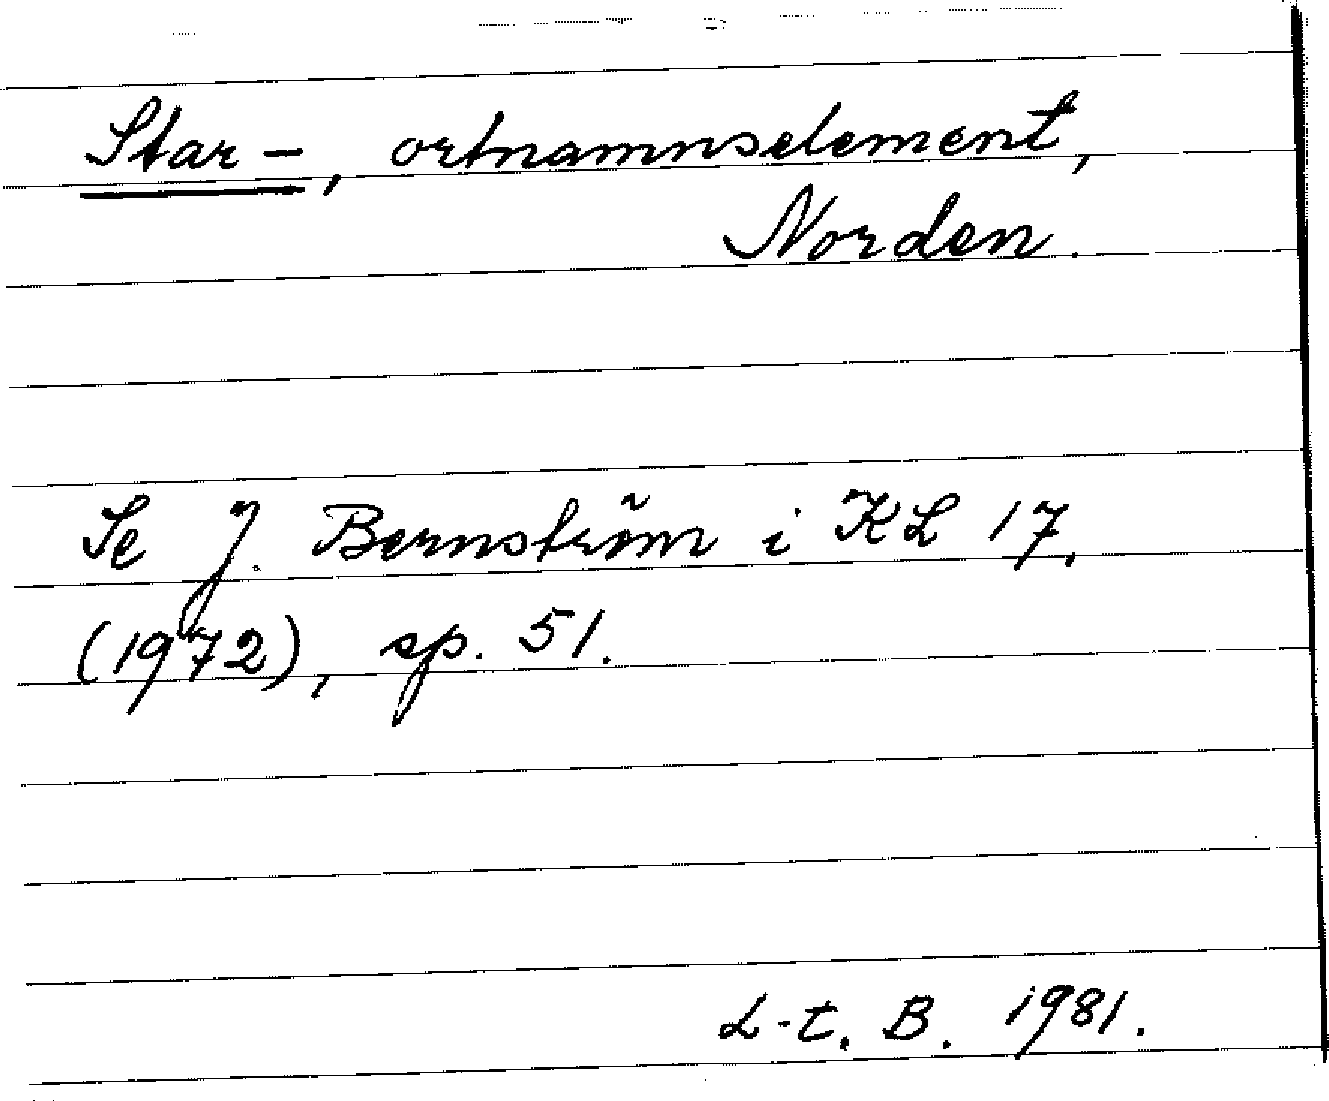 Star-, ortnamnselement,
Norden.
Se J. Bernström i KL 17,
(1972), sp. 51.
L-t. B. 1981.